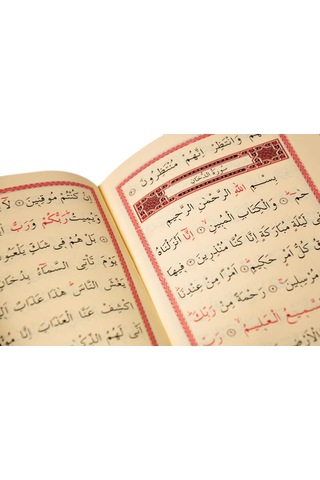 وَانْتَظِرْ اِنَّهُمْ مُنْتَظِرُونَ
سورة الدخان
بِسْمِ اللّٰهِ الرَّحْمٰنِ الرَّحِيمِ
حٰمٓ وَالْكِتَابِ الْمُبِينِ اِنَّٓا اَنْزَلْنَاهُ
لَيْلَةٍ مُبَارَكَةٍ اِنَّا كُنَّا مُنْذِرِينَ فِيهَا
كُلُّ اَمْرٍ حَكِيمٍ اَمْرًا مِنْ عِنْدِنَا
مُرْسِلِينَ رَحْمَةً مِنْ رَبِّكَ
الْعَلِيمُ
اِنْ كُنْتُمْ مُوقِنِينَ
وَيُمِيتُ رَبُّكُمْ وَرَبُّ
بَلْ هُمْ فِي شَكٍّ يَلْعَبُونَ
يَوْمَ تَأْتِي السَّمَٓاءُ
يَغْشَى النَّاسَ هٰذَا عَذَابٌ
اكْشِفْ عَنَّا الْعَذَابَ اِنَّا
اَنّٰى لَهُمُ الذِّكْرٰى